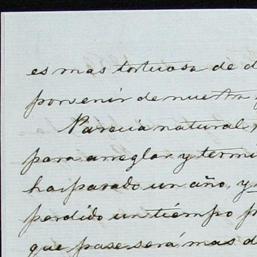 es mas tortuosa de d
porvenir de nuestra
Parecia natural,
para arreglar y termi
ha pasado un año, y
perdido un tiempo p
que pase será mas d